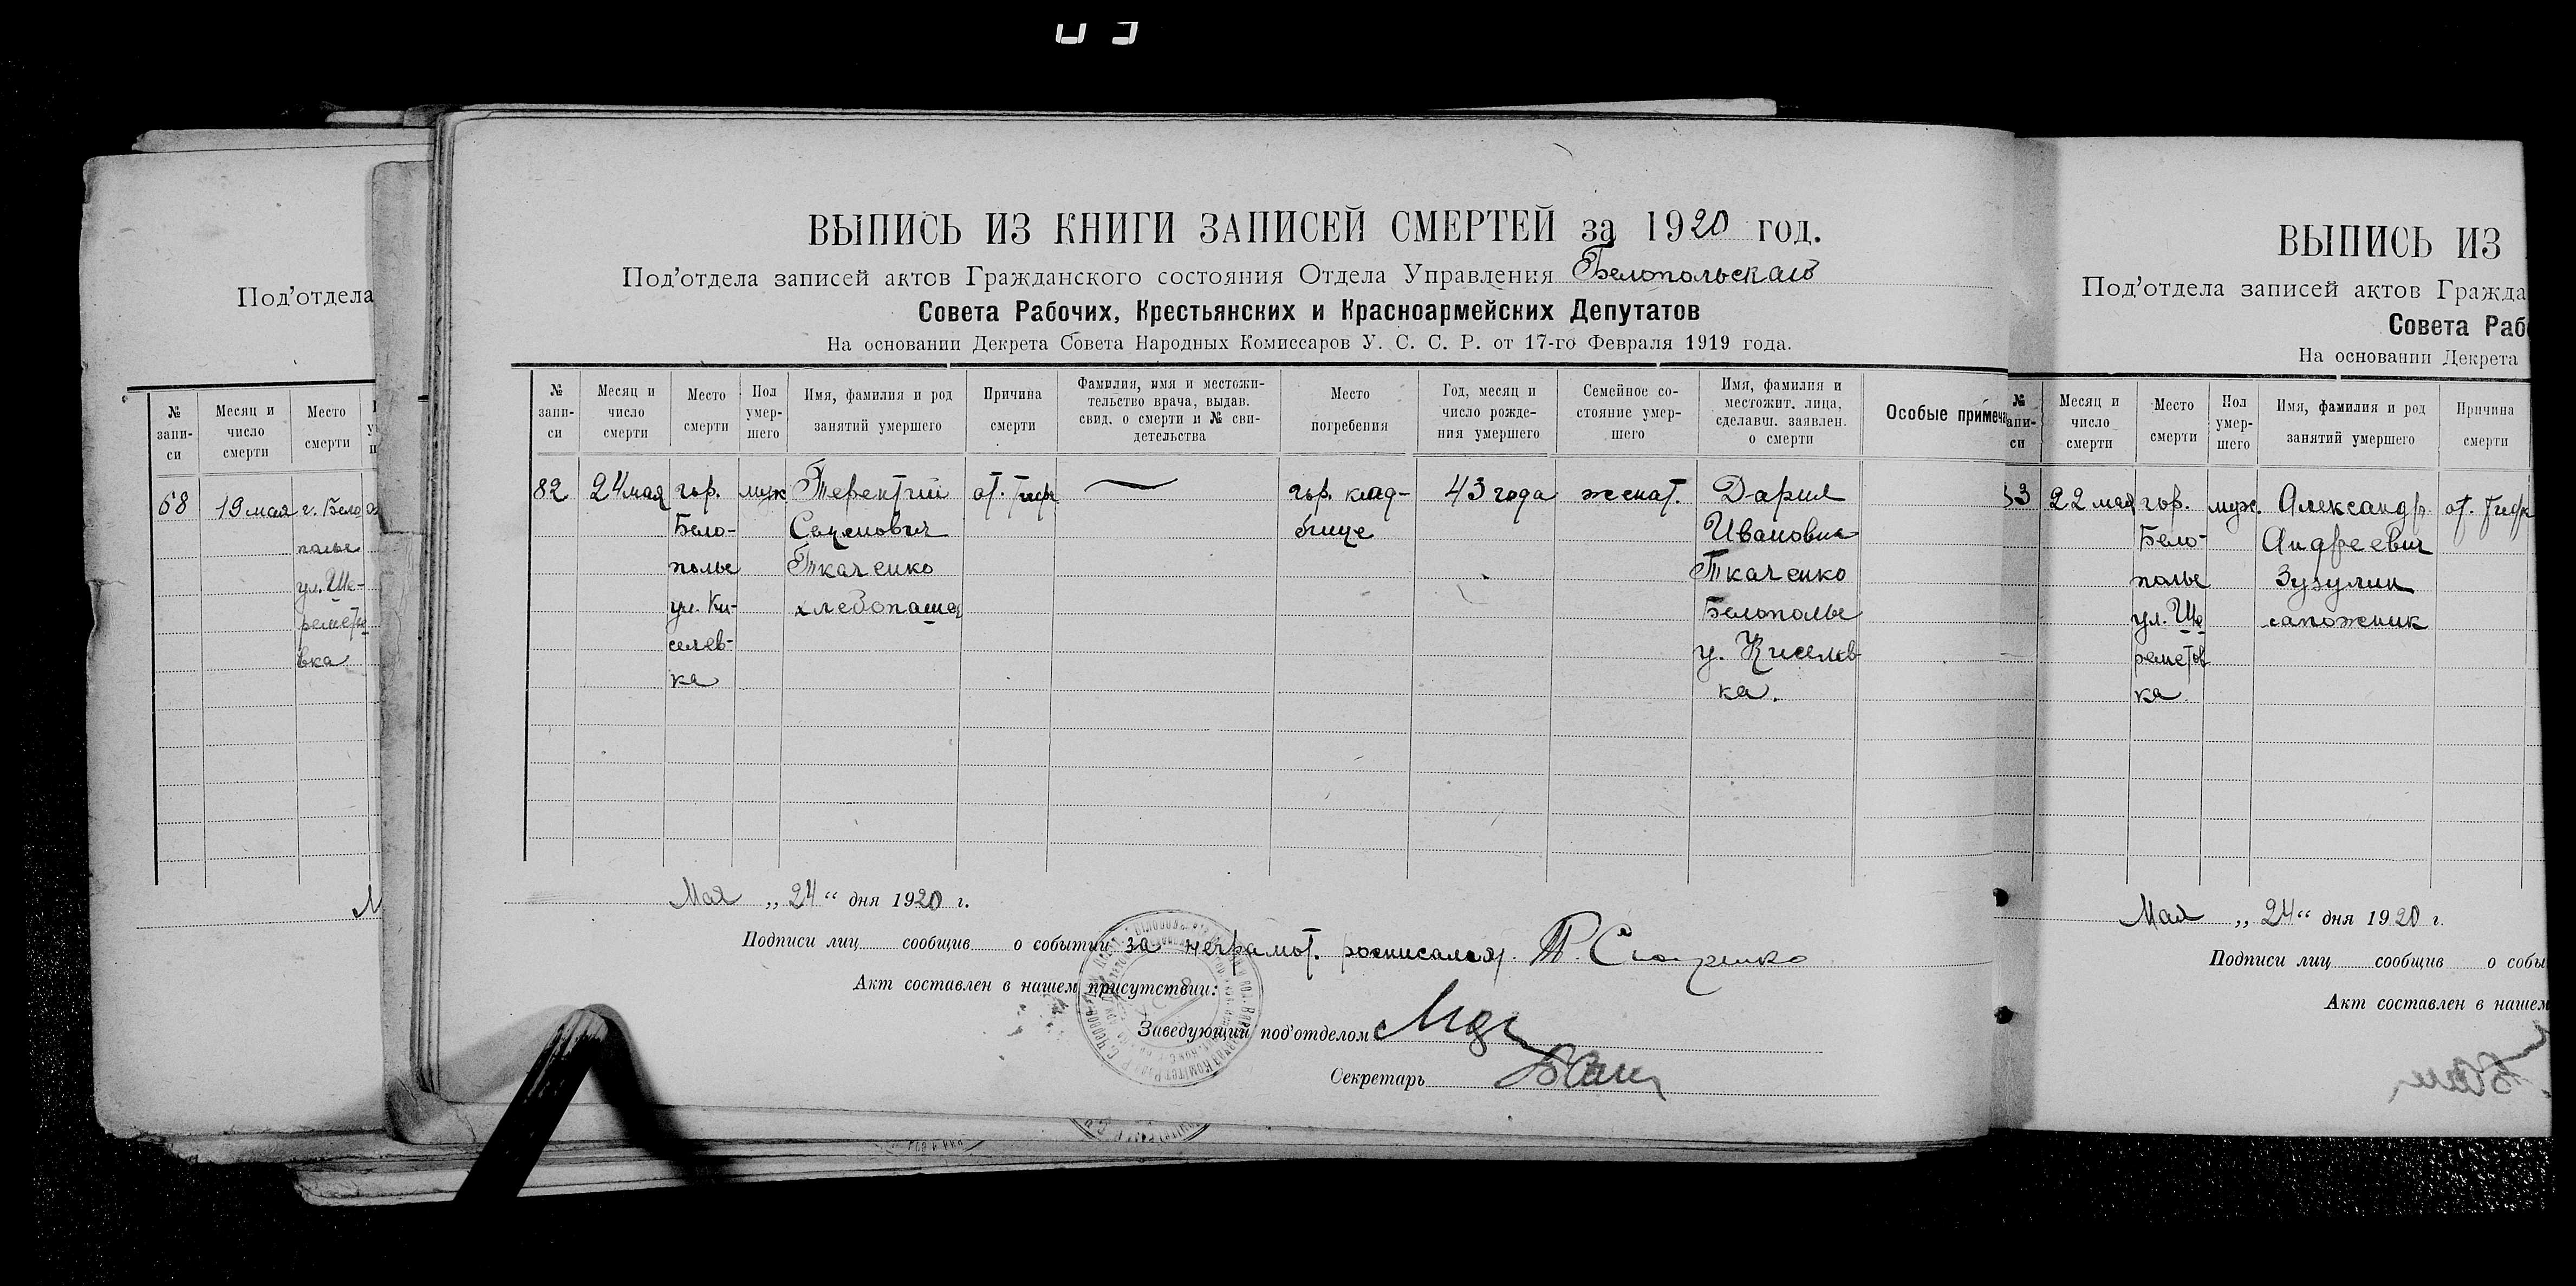 Под'отдела
№ запи-си
Месяц и число смерти
Место смерти
58
19 мая
г. Бело
полье
ул. Ше-
реметo
вка
ВЫПИСЬ ИЗ КНИГИ ЗАПИСЕЙ СМЕРТЕЙ за 1920 год.
Под'отдела записей актов Гражданского состояния Отдела Управления Белопольскаго
Совета Рабочих, Крестьянских и Красноармейских Депутатов
На основании Декрета Совета Народных Комиссаров У. С. С. Р. от 17-го Февраля 1919 года.
№ запи-си
Месяц и число смерти
Место смерти
Пол умер-шего
Имя, фамилия и род занятий умершего
Причина смерти
Фамилия, имя и местожи-тельство врача, выдав. свид. о смерти и № сви-детельства
Место погребения
Год, месяц и число рожде-ния умершего
Семейное со-стояние умер-шего
Имя, фамилия и местожит. лица, сделавш. заявлен. о смерти
Особые примеча
82
24 мая
гор.
Бело-
полье
ул. Ки-
селев-
ка
муж
Терентий
Семенович
Ткаченко
хлебопашец
от. тифа
гор. клад-
бище
43 года
женат.
Дария
Ивановна
Ткаченко
Белополье
у. Киселев-
ка.
Мая „24“ дня 1920 г.
Подписи лиц сообщив о событии за неграмот. росписался
Акт составлен в нашем присутствии:
Заведующий под'отделом
Секретарь
ВЫПИСЬ ИЗ
Под'отдела записей актов Гражда
Совета Рабо
На основании Декрета
№ апи-си
Месяц и число смерти
Место смерти
Пол умер-шего
Имя, фамилия и род занятий умершего
Причина смерти
53
22 мая
гор.
Бело-
полье
ул. Ше
реметов
ка
муж.
Александр
Андреевич
Зузулин
сапожник
от. тифа
Мая „24“ дня 1920 г.
Подписи лиц сообщив о собы
Акт составлен в нашем